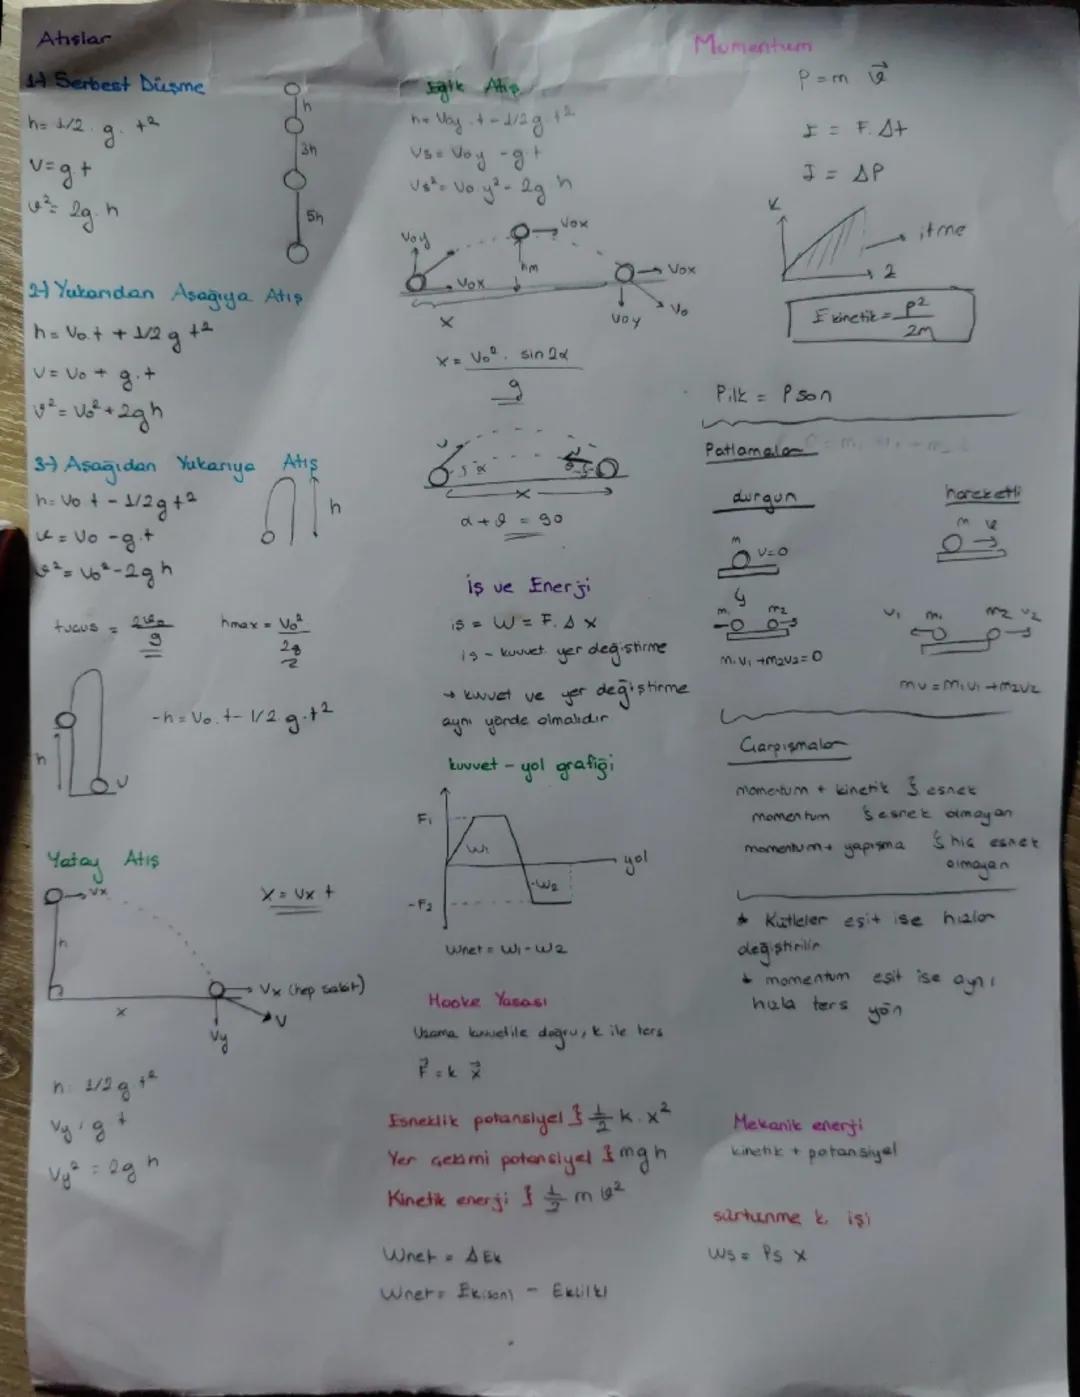 Atışlar
1-) Serbest Düşme
h= 1/2 . g. t²
V=g.t
v²= 2g.h
h
3h
5h
2-) Yukarıdan Aşağıya Atış
h= V₀.t + 1/2 g t²
V= V₀ + g.t
v²= V₀²+2gh
3-) Aşağıdan Yukarıya Atış
h= V₀ t - 1/2 g t²
v = V₀ - g.t
v²= V₀²-2gh
h
tuçuş = 2V₀/g
hmax = V₀²/2g
-h = V₀.t - 1/2 g.t²
h
v
Yatay Atış
Vx
X = Vx t
h
Vx (hep sabit)
x
Vy
V
h: 1/2 g t²
Vy : g t
Vy² = 2g h
Eğik Atış
h= V₀y . t - 1/2 g . t²
Vs = V₀y - g.t
Vs² = V₀y² - 2g h
V₀y
V₀x
hm
V₀x
V₀x
V₀
V₀y
X
X = V₀² . sin 2α / g
α
X
α + θ = 90
iş ve Enerji
iş = W = F. Δ x
iş - kuvvet yer değiştirme
→ kuvvet ve yer değiştirme
aynı yönde olmalıdır
kuvvet - yol grafiği
F₁
W₁
yol
-W₂
-F₂
Wnet = W₁ - W₂
Hooke Yasası
Uzama kuvvetile doğru, k ile ters
F = k x
Esneklik potansiyel } 1/2 k. x²
Yer çekimi potansiyel } mgh
Kinetik enerji } 1/2 m v²
Wnet = Δ Ek
Wnet = Ek(son) - Ek(ilk)
Mumentum
P = m v
I = F. Δt
I = ΔP
itme
2
E kinetik = p²/2m
Pilk = Pson
Patlamalar
durgun
hareketli
m
V=0
m v
m₁ m₂
V₁ m₁ m₂ V₂
m₁V₁ + m₂V₂ = 0
mv = m₁V₁ + m₂V₂
Çarpışmalar
momentum + kinetik } esnek
momentum } esnek olmayan
momentum + yapışma } hiç esnek
olmayan
* Kütleler eşit ise hızlar
değiştirilir
* momentum eşit ise aynı
hızla ters yön
Mekanik enerji
kinetik + potansiyel
sürtünme k. işi
Ws = Fs x